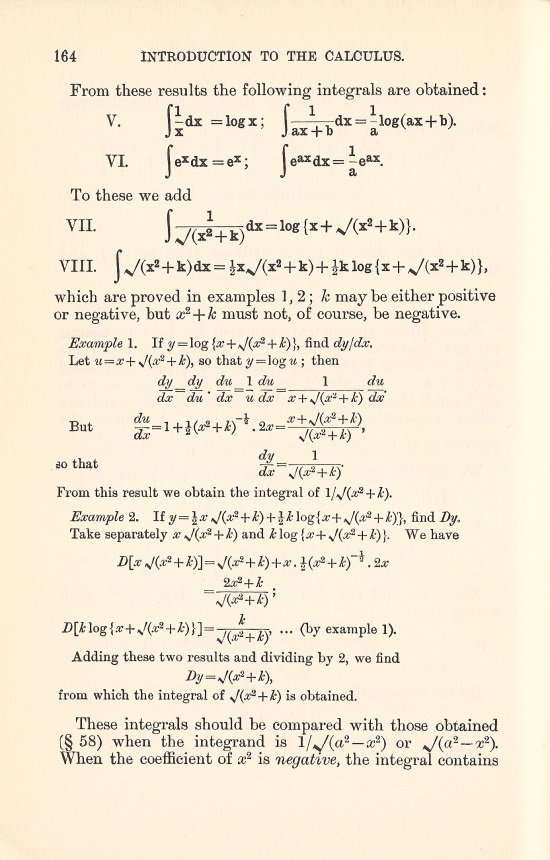 164 INTRODUCTION TO THE CALCULUS.
From these results the following integrals are obtained:
V. ∫1/x dx = log x; ∫1/(ax+b) dx = 1/a log(ax+b).
VI. ∫eˣdx = eˣ; ∫eᵃˣdx = 1/a eᵃˣ.
To these we add
VII. ∫1/√(x²+k) dx = log{x+√(x²+k)}.
VIII. ∫√(x²+k)dx = ½x√(x²+k)+½k log{x+√(x²+k)},
which are proved in examples 1, 2; k may be either positive
or negative, but x²+k must not, of course, be negative.
Example 1. If y=log{x+√(x²+k)}, find dy/dx.
Let u=x+√(x²+k), so that y=log u; then
dy/dx = dy/du · du/dx = 1/u du/dx = 1/(x+√(x²+k)) du/dx.
But du/dx = 1+½(x²+k)^(-½) . 2x = (x+√(x²+k))/√(x²+k),
so that dy/dx = 1/√(x²+k).
From this result we obtain the integral of 1/√(x²+k).
Example 2. If y=½x√(x²+k)+½k log{x+√(x²+k)}, find Dy.
Take separately x√(x²+k) and k log{x+√(x²+k)}. We have
D[x√(x²+k)]=√(x²+k)+x . ½(x²+k)^(-½) . 2x
= (2x²+k)/√(x²+k);
D[k log{x+√(x²+k)}] = k/√(x²+k), ... (by example 1).
Adding these two results and dividing by 2, we find
Dy=√(x²+k),
from which the integral of √(x²+k) is obtained.
These integrals should be compared with those obtained
(§ 58) when the integrand is 1/√(a²−x²) or √(a²−x²).
When the coefficient of x² is negative, the integral contains